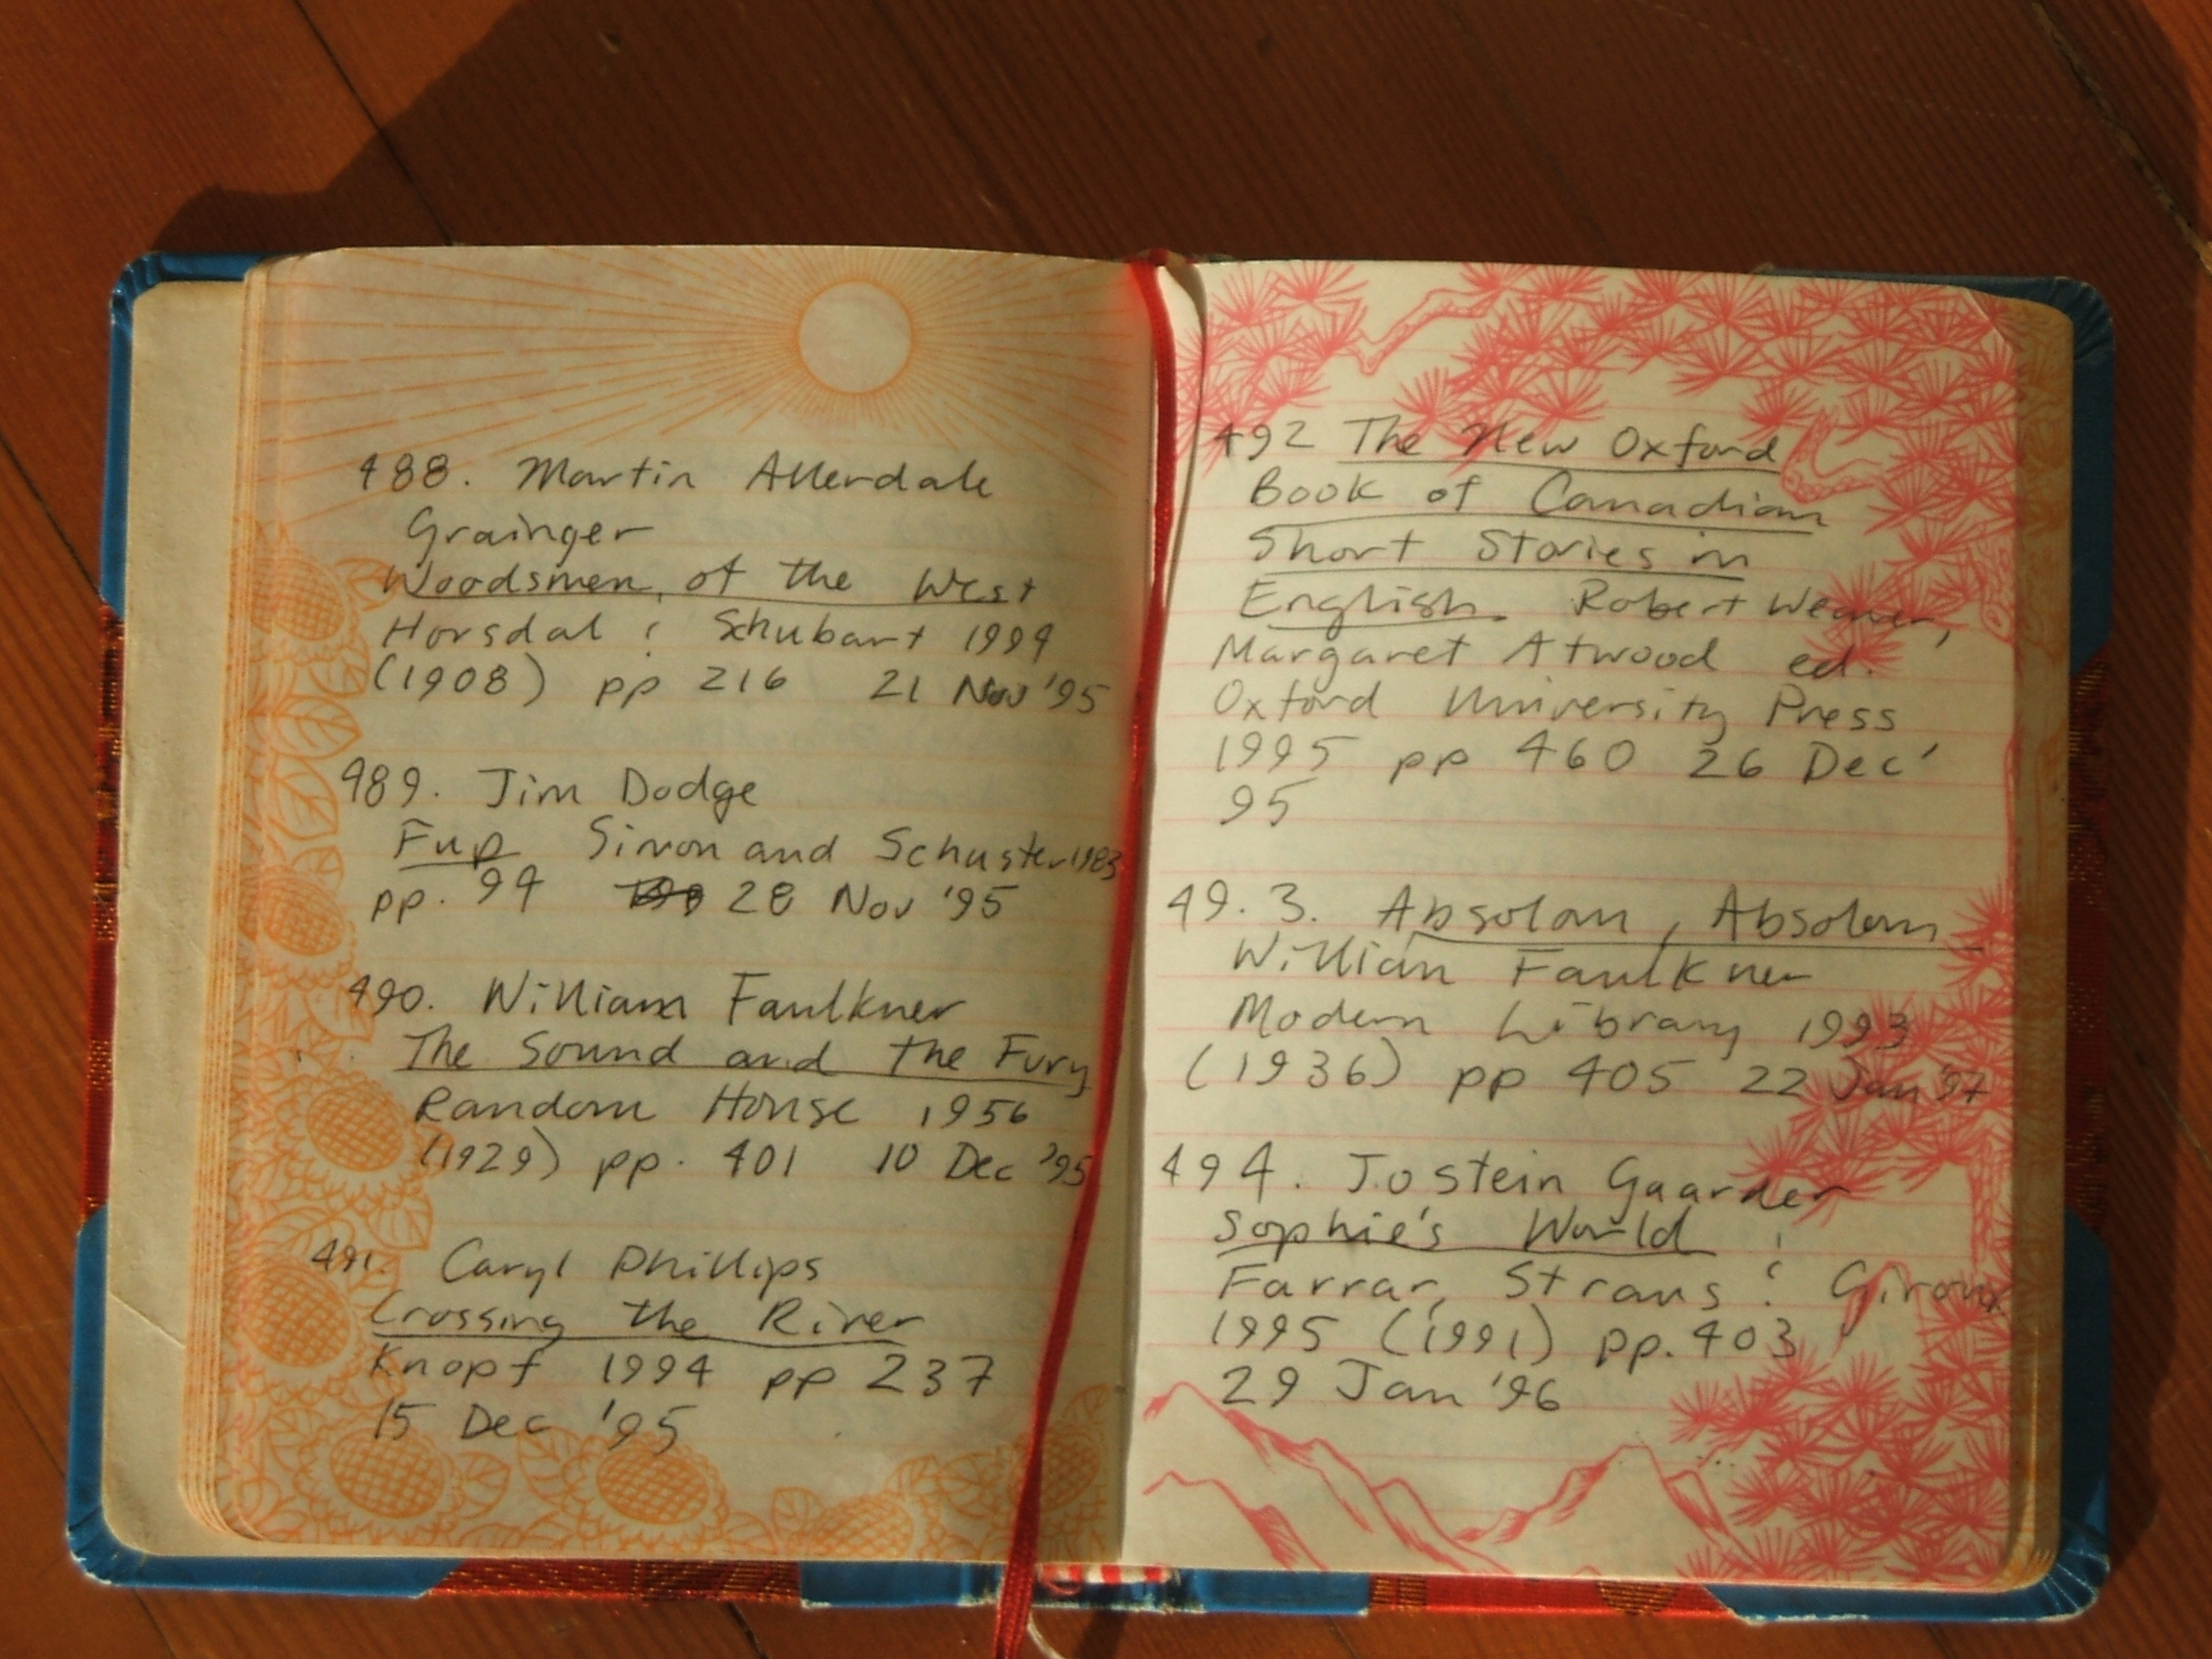 488. Martin Allerdale
Grainger
Woodsmen of the West
Horsdal & Schubart 1994
(1908) pp 216 21 Nov '95
489. Jim Dodge
Fup Simon and Schuster 1983
pp. 94 28 Nov '95
490. William Faulkner
The Sound and the Fury
Random House 1956
(1929) pp. 401 10 Dec '95
491. Caryl Phillips
Crossing the River
Knopf 1994 pp 237
15 Dec '95
492 The New Oxford
Book of Canadian
Short Stories in
English. Robert Weaver,
Margaret Atwood ed.
Oxford University Press
1995 pp 460 26 Dec '
95
49.3. Absolom, Absolom
William Faulkner
Modern Library 1993
(1936) pp 405 22 Jan '97
494. Jostein Gaarder
Sophie's World
Farrar, Straus & Giroux
1995 (1991) pp. 403
29 Jan '96